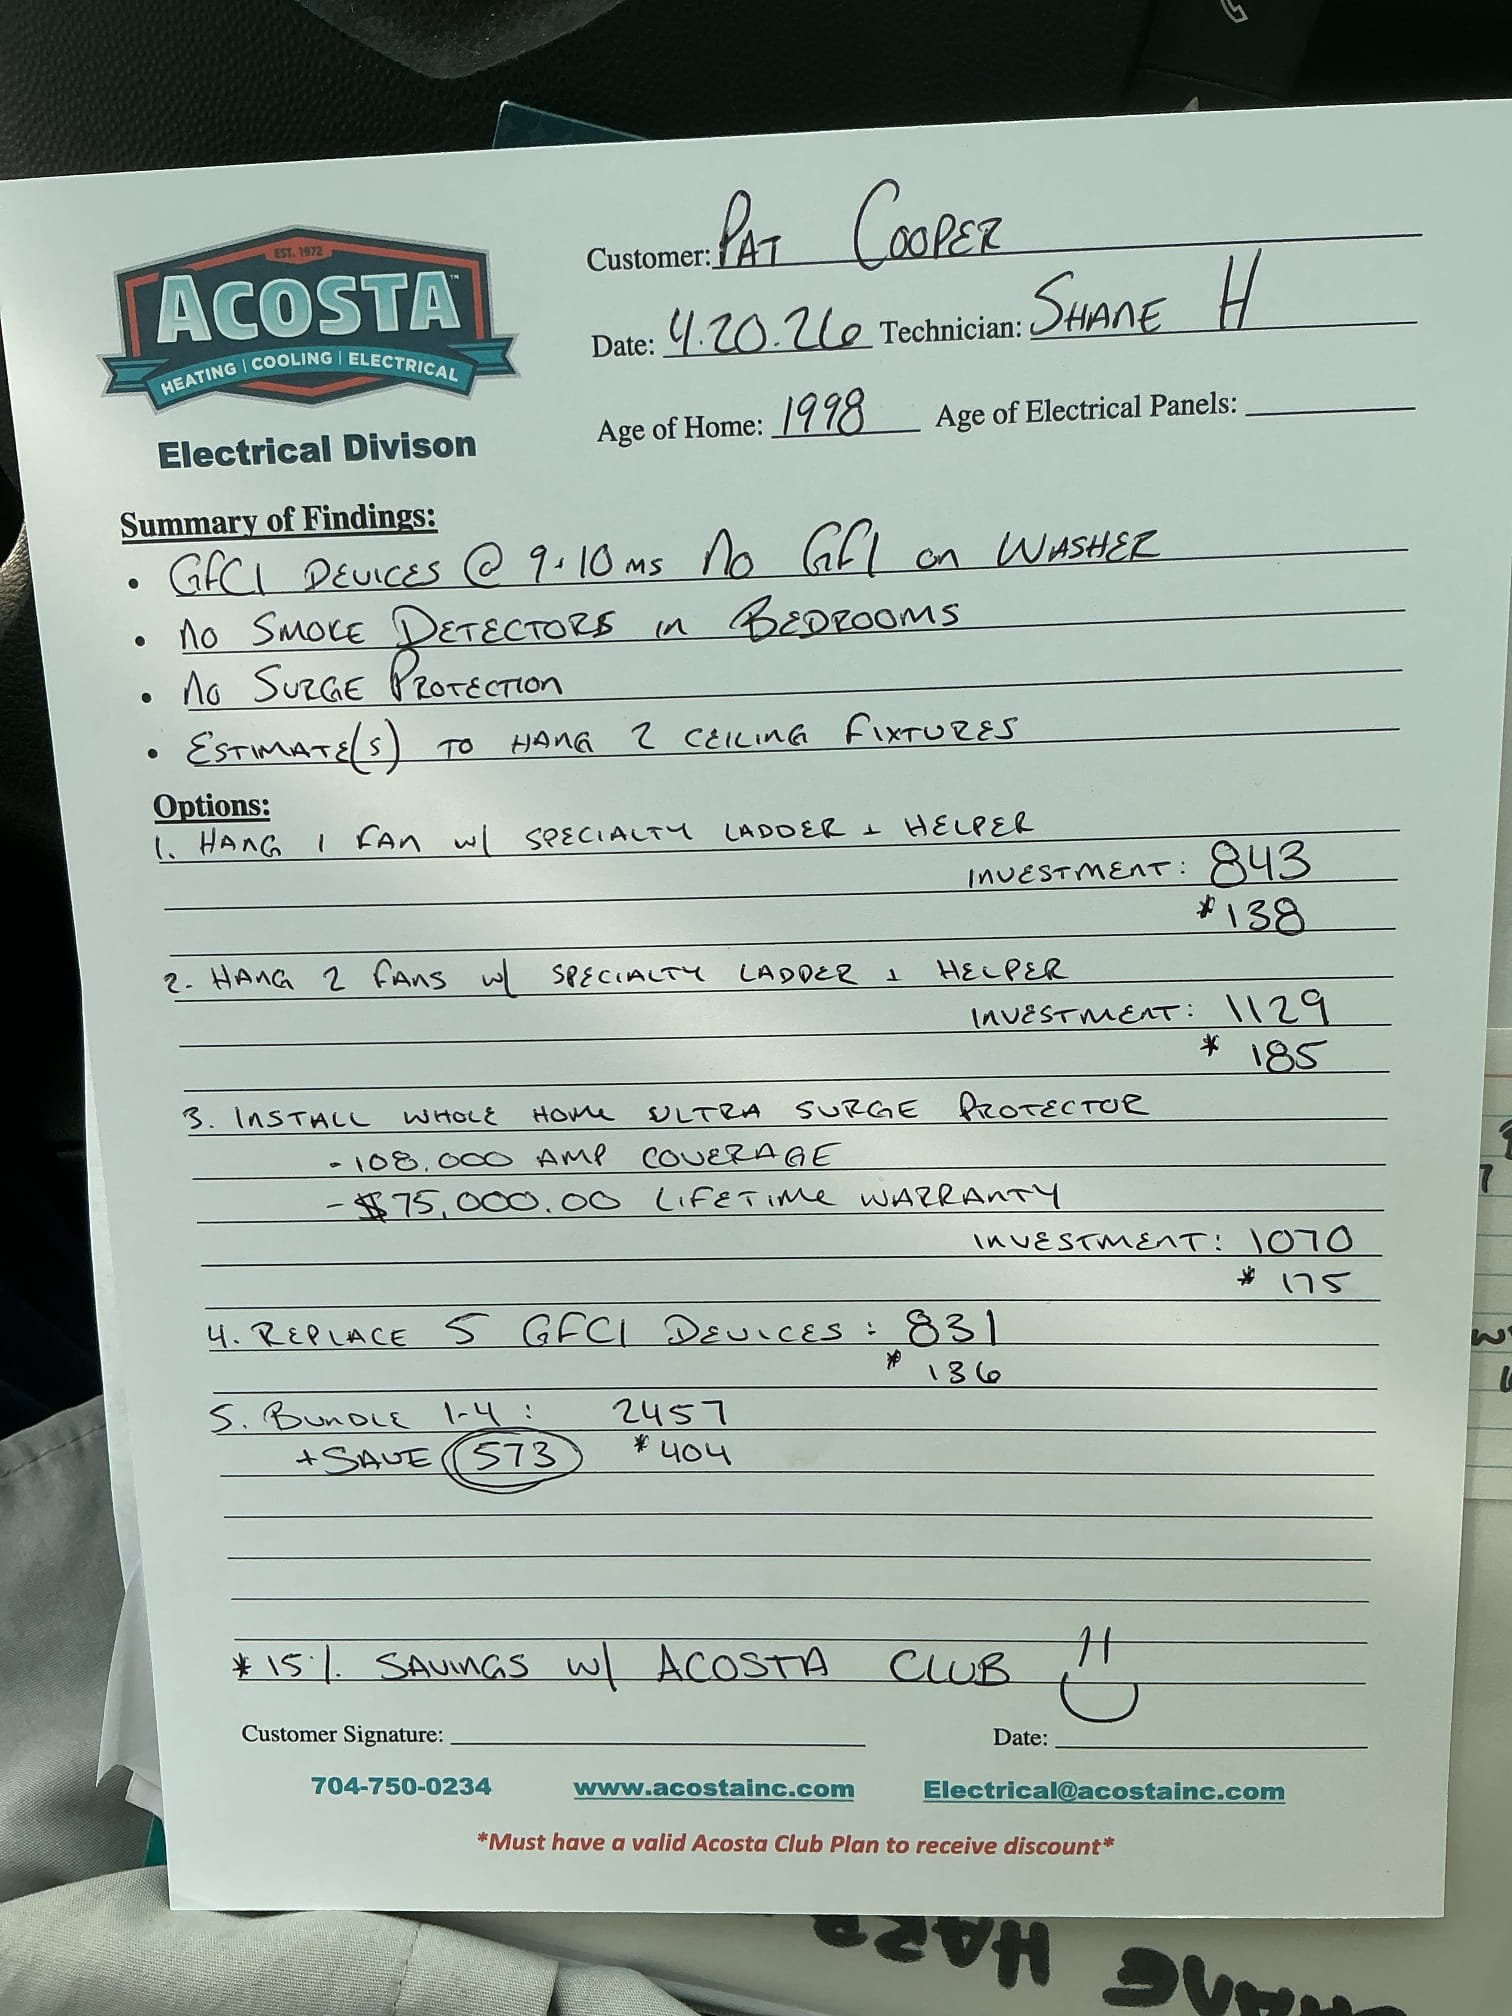 EST. 1972
ACOSTA™
HEATING | COOLING | ELECTRICAL
Electrical Divison
Customer: PAT COOPER
Date: 4.20.26 Technician: SHANE H
Age of Home: 1998 Age of Electrical Panels:
Summary of Findings:
• GFCI DEVICES @ 9.10 MS NO GFI ON WASHER
• NO SMOKE DETECTORS IN BEDROOMS
• NO SURGE PROTECTION
• ESTIMATE(S) TO HANG 2 CEILING FIXTURES
Options:
1. HANG 1 FAN W/ SPECIALTY LADDER + HELPER
INVESTMENT: 843
* 138
2. HANG 2 FANS W/ SPECIALTY LADDER + HELPER
INVESTMENT: 1129
* 185
3. INSTALL WHOLE HOME ULTRA SURGE PROTECTOR
- 108,000 AMP COVERAGE
- $75,000.00 LIFETIME WARRANTY
INVESTMENT: 1070
* 175
4. REPLACE 5 GFCI DEVICES: 831
* 136
5. BUNDLE 1-4: 2457
+ SAVE 573 * 404
* 15% SAVINGS W/ ACOSTA CLUB
Customer Signature: Date:
704-750-0234 www.acostainc.com Electrical@acostainc.com
*Must have a valid Acosta Club Plan to receive discount*